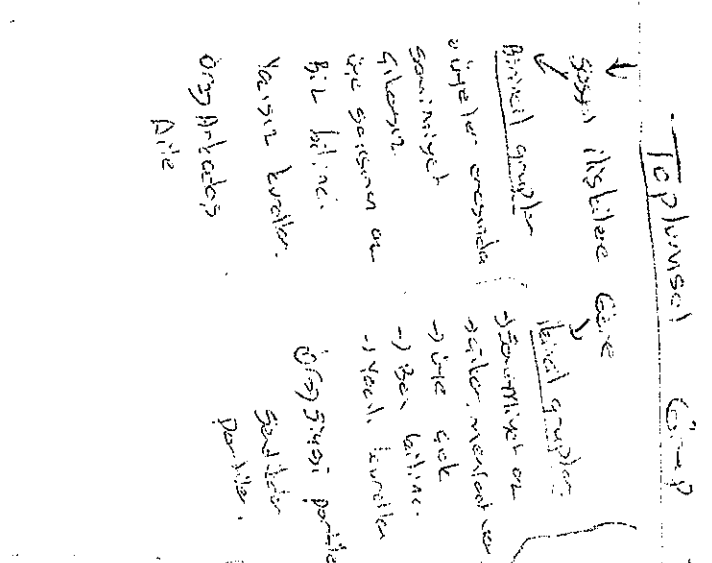 Toplumsal Grup
Sosyal ilişkilere Göre
Birincil gruplar
üyeler arasında
samimiyet
çıkarsız.
üye sayısının az
Biz bilinci.
Yazısız kurallar.
Örg Arkadaş
Aile
ikincil gruplar
→ Samimiyet az
→ çıkar, menfaat var
→ üye çok
→ Ben bilinci.
→ Yazılı kurallar
örg Siyasi partiler